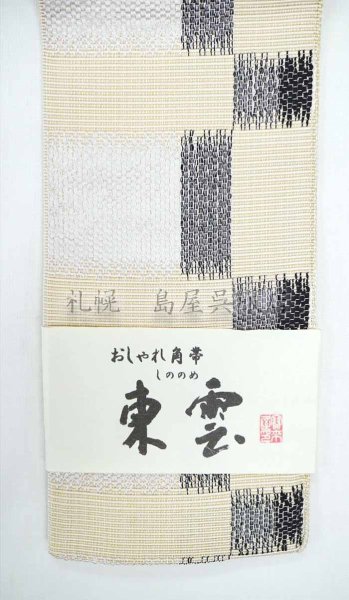 札幌 島屋呉
おしゃれ角帯
しののめ
東雲